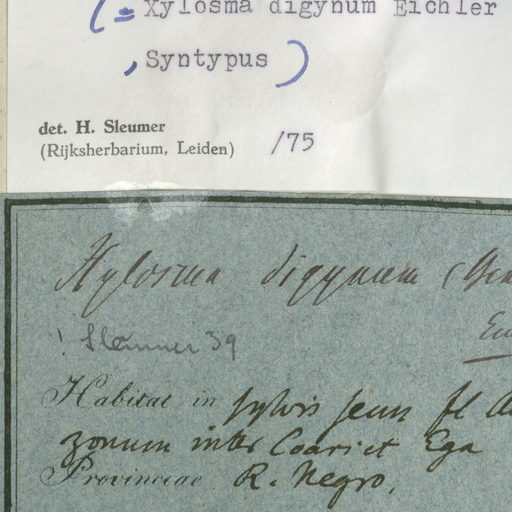 (= Xylosma digynum Eichler
, Syntypus )
det. H. Sleumer
(Rijksherbarium, Leiden) /75
Xylosma digynum (
! Sleumer 39
Habitat in sylvis secus fl
zonum inter Coari et Ega
Provinciae R. Negro.